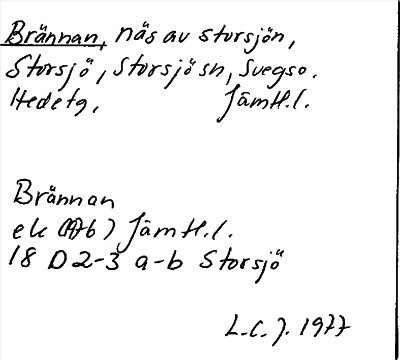 Brännan, näs av storsjön,
Storsjö, Storsjö sn, Svegs o.
Hede tg, Jämtl.l.
Brännan
ek (Ab) Jämtl.l.
18 D 2-3 a-b Storsjö
L.C.J. 1977